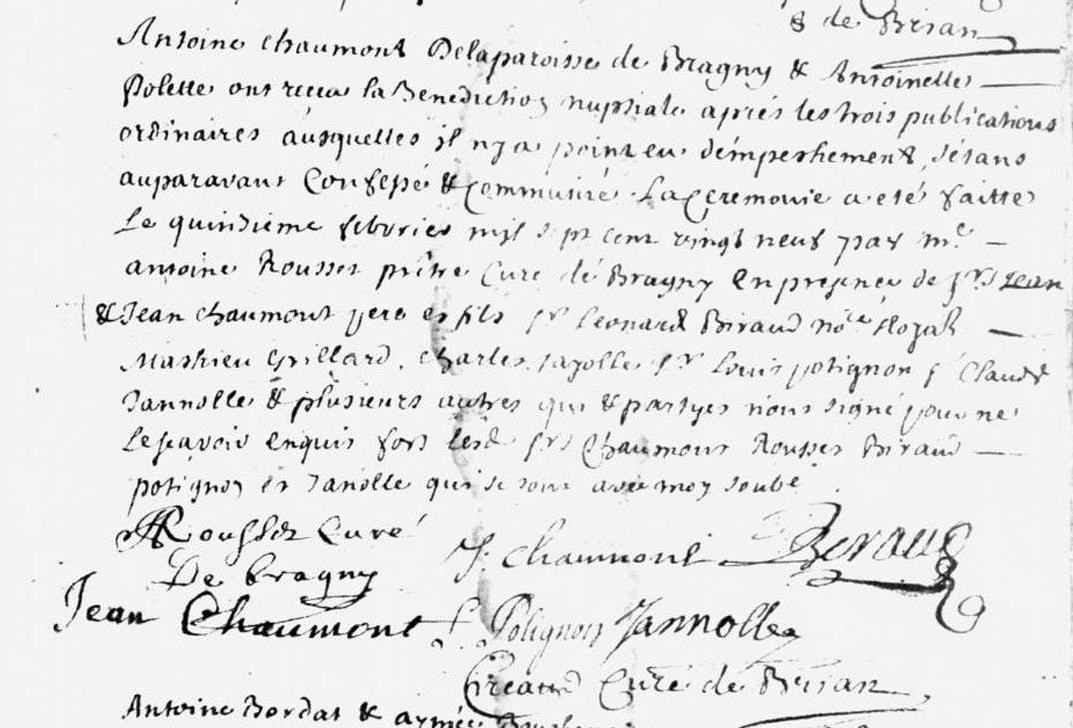 de Brian
Antoine Chaumont Delaparoisse de Bragny & Antoinette
Polette ont receu la Benediction nuptiale après les trois publications
ordinaires ausquelles il ny a point eu dempeschement, sétans
auparavant Confessé & communié. La Ceremonie a eté faitte
Le quinzieme febvrier mil sept cent vingt neuf par m.e
antoine Rousset prêtre Curé de Bragny en presence de srs Jean
& Jean chaumont pere et fils sr Leonard Biraud no.re Royal
Mathieu Grillard, charles Jayolle sr Louis potignon s Claude
Jannolle & plusieurs autres qui & partyes nont signé pour ne
Le sçavoir enquis fors lesd srs Chaumont Rousset Biraud
potignon et Janolle qui se sont avec moy soubé
Rousset Curé
De bragny
J. Chaumont Beraud
Jean Chaumont L. Potignon Jannolle
Curé de Brian
Antoine Bordat & aymée